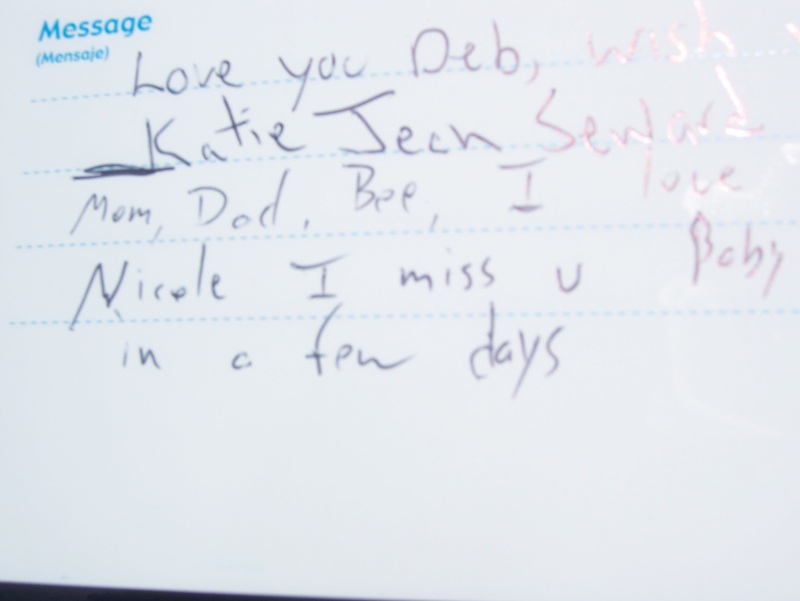 Message
(Mensaje)
Love you Deb, wish
Katie Jean Seward
Mom, Dad, Bee, I love
Nicole I miss u Baby
in a few days